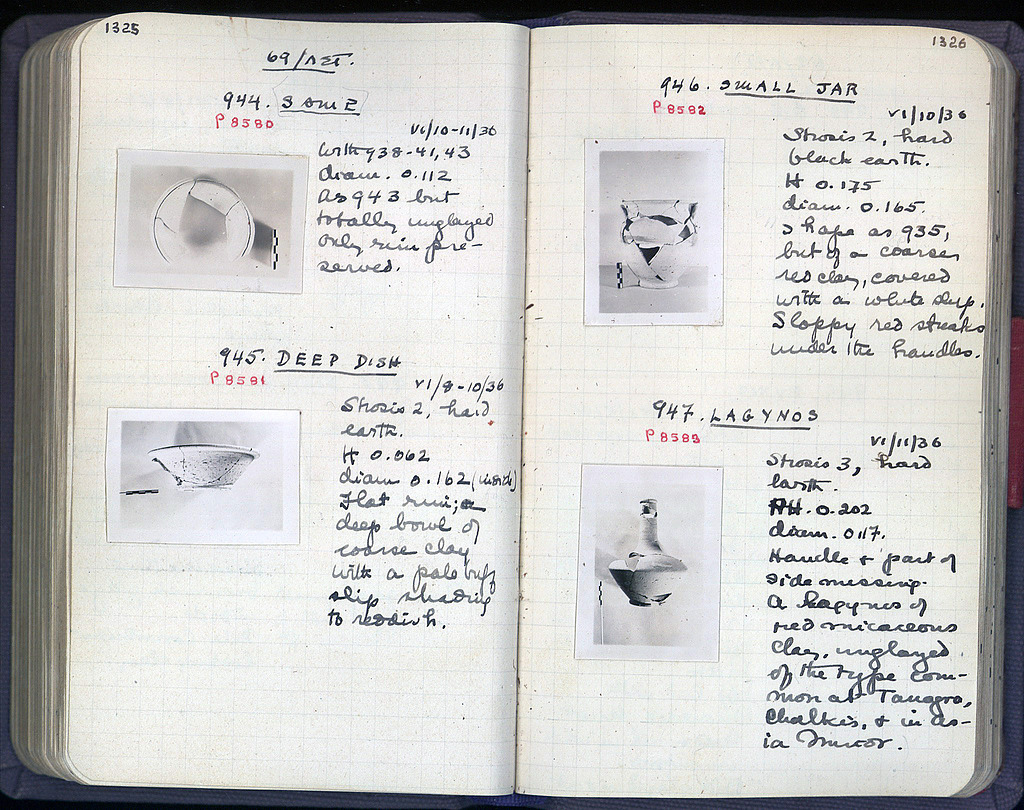 1325
69/ΛΣΤ.
944. SAME
P 8580
VI/10-11/36
With 938-41, 43
diam. 0.112
As 943 but
totally unglazed
only rim pre-
served.
945. DEEP DISH
P 8581
VI/8-10/36
Strosis 2, hard
earth.
H 0.062
diam 0.162
Flat rim; a
deep bowl of
coarse clay
with a pale buff
slip shading
to reddish.
1326
946. SMALL JAR
P 8582
VI/10/36
Strosis 2, hard
black earth.
H 0.175
diam. 0.165.
Shape as 935,
but of a coarser
red clay, covered
with a white slip.
Sloppy red streaks
under the handles.
947. LAGYNOS
P 8583
VI/11/36
Strosis 3, hard
earth.
H. 0.202
diam. 0.17.
Handle + part of
side missing.
A lagynos of
red micaceous
clay, unglazed
of the type com-
mon at Tanagra,
Chalkis, + in As-
ia Minor.